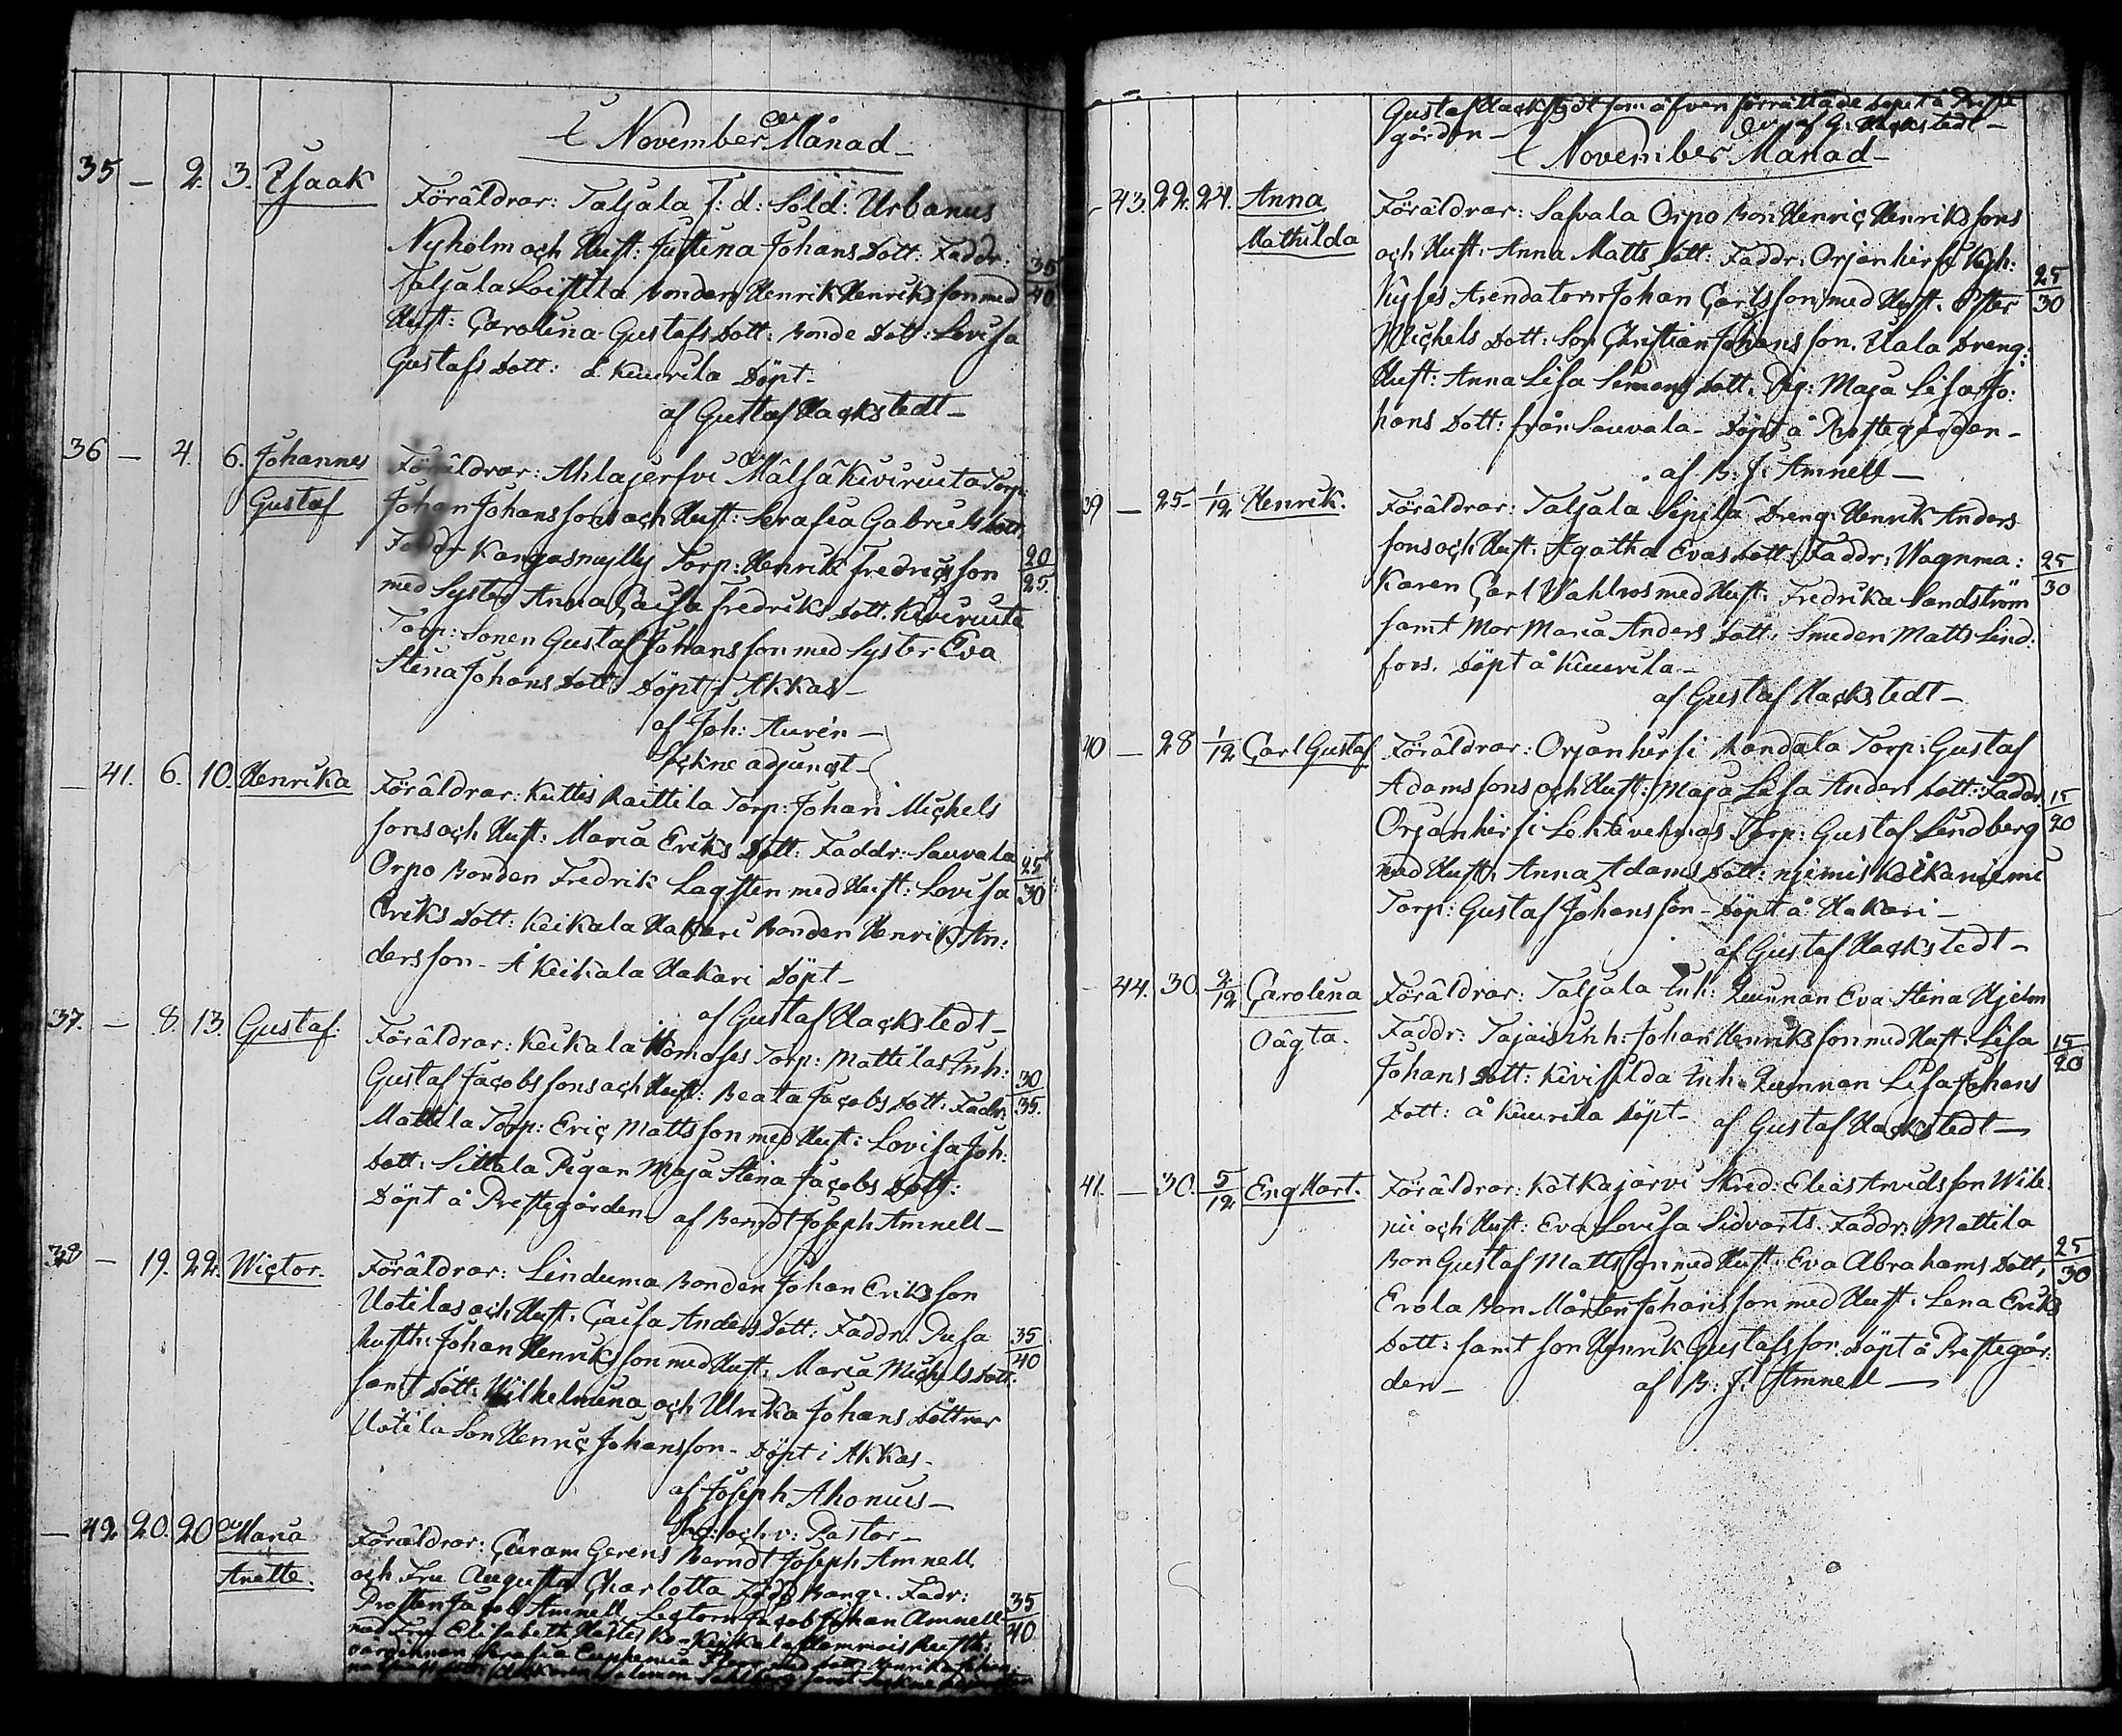 I November Månad
35 — 2. 3. Isaak Föräldrar: Taljala f: d: Sold: Urbanus
Nyholm och Hust: Justina Johans Dott: Faddr: 35
Taljala Loittila bonden Henrik Henriksson med 40
Hust: Carolina Gustafs Dott: Bonde Dott: Lovisa
Gustafs Dott: å Kuurila Döpt
af Gustaf Hackstedt
36 — 4. 6. Johannes Föräldrar: Ahlajerfvi Mälsä Kiviruuta Torp:
Gustaf Johan Johanssons och Hust: Serafia Gabriels Dott:
Faddr Kangasmylly Torp: Henrik Fredricsson 20
med Syster Anna Caisa Fredriks Dott. Kiviruuta 25.
Torp: Sonen Gustaf Johansson med Syster Eva
Stina Johans Dott: Döpt i Akkas
af Joh: Aurén
Sockne adjunct
— 41. 6. 10. Henrika Föräldrar: Kuttis Raittila Torp: Johan Michels
sons och Hust: Maria Eriks Dott: Faddr: Sauvala 25
Orpo Bonden Fredrik Lagsten med Hust: Lovisa 30
Eriks Dott: Keikala Hakari Bonden Henrik An:
dersson. Å Keikala Hakari Döpt
af Gustaf Hackstedt
37. — 8. 13. Gustaf. Föräldrar: Keikala Torp: Mattilas Inh: 30
Gustaf Jacobssons och Hust: Beata Jacobs Dott: Fadr: 35.
Mattila Torp: Eric Mattsson med Hust: Lovisa Joh:
Dott: Sittala Pigan Maja Stina Jacobs Dott:
Döpt å Prestegården af Berndt Joseph Amnell
38 — 19. 22. Wictor. Föräldrar: Linduma Bonden Johan Eriksson
Uotilas och Hust: Caisa Anders Dott: Faddr: 35
Rusth: Johan Henriksson med Hust: Maria Michels Dott: 40
samt Dött: Wilhelmina och Ulrika Johans Döttrar
Uotila Son Henric Johansson. Döpt i Akkas
af Joseph Ahonius
och v: Pastor
— 42 20. 20 Maria Föräldrar: Curam Gerens Berndt Joseph Amnell
Anette. och Fru Augusta Charlotta född Bange. Fadr: 35
Prosten Jacob Amnell, Lectorn Jacob Johan Amnell 40
med Fru Elisabeth Keikala Hommois Rusth:
Serafia Euphemia
Gustaf Hackstedt som äfven förrättade dopet å Preste
gården af G: Hackstedt
I November Månad
43. 22. 24. Anna Föräldrar: Safvala Orpo Bon Henric Henrikssons
Mathilda och Hust: Anna Matts Dott: Faddr: Orjanhirsi 25
Arendatorn Johan Carlsson med Hust: Ester 30
Michels Dott: Son Christian Johansson. Uala Dreng:
Hust: Anna Lisa Simons Dott: Pig: Maja Lisa Jo:
hans Dott: från Sauvala. Döpt å Prestegården
af B: J: Amnell
39 — 25 1/12 Henrik. Föräldrar: Taljala Sipilä Dreng: Henrik Anders
sons och Hust: Agatha Evas Dott: Faddr: Wagnma: 25
karen Carl Wahlros med Hust: Fredrika Sandström 30
samt Mor Maria Anders Dott: Smeden Matts Lind:
fors. Döpt å Kuurila
af Gustaf Hackstedt
40 — 28 1/12 Carl Gustaf Föräldrar: Orjanhirsi Torp: Gustaf
Adamssons och Hust: Maja Lisa Anders Dott: Faddr: 15
Orjanhirsi Torp: Gustaf Lindberg 20
med Hust: Anna Adams Dott: niemis
Torp: Gustaf Johansson Döpt å Hakari
af Gustaf Hackstedt
44. 30. 2/12 Carolina Föräldrar: Taljala Inh: Quinnan Eva Stina Hjelm
Oägta. Faddr: Inh: Johan Henriksson med Hust: Lisa 15
Johans Dott: Inh: Quinnan Lisa Johans 20
Dott: å Kuurila Döpt af Gustaf Hackstedt
41. — 30. 5/12 Engelbert. Föräldrar: Kotkajärvi Skred: Elias Arvidsson Wile:
nii och Hust: Eva Lovisa Sidvarts. Faddr: Mattila
Bon Gustaf Mattsson med Hust: Eva Abrahams Dott: 25
Erola Bon Mårten Johansson med Hust: Lena Eriks 30
Dott: samt son Henrik Gustafsson. Döpt å Prestegår:
den af B: J: Amnell